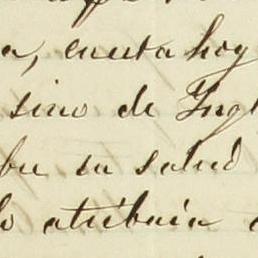 a, cuesta hoy
sino de Ingl
su salud
lo atribuia